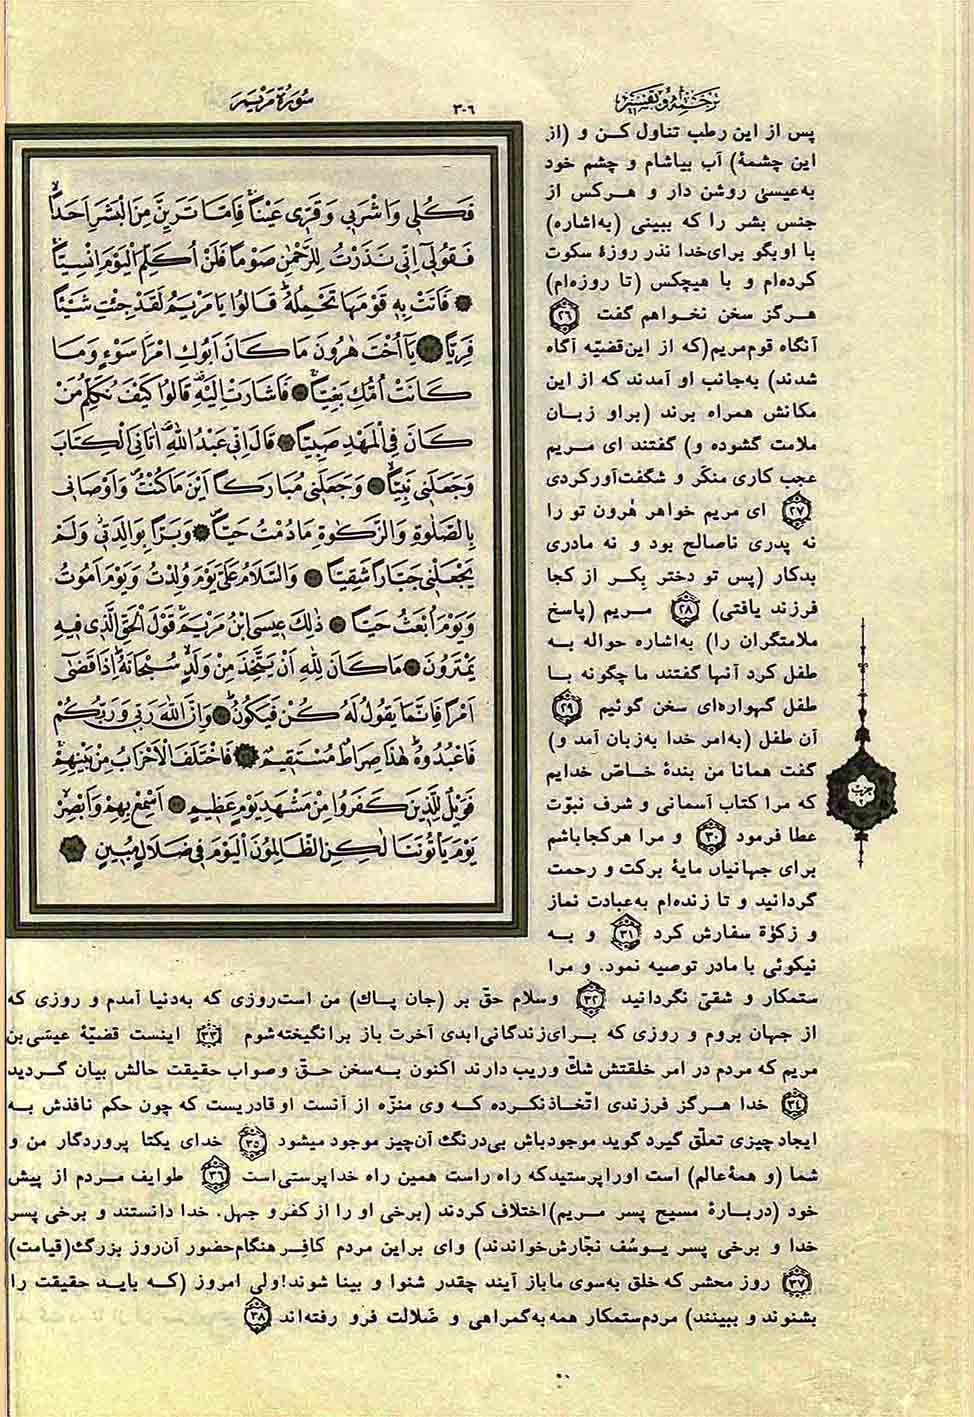 ترجمه و تفسیر
۳۰۶
سورة مریم
فَكُلِي وَاشْرَبِي وَقَرِّي عَيْنًا فَإِمَّا تَرَيِنَّ مِنَ الْبَشَرِ أَحَدًا
فَقُولِي إِنِّي نَذَرْتُ لِلرَّحْمٰنِ صَوْمًا فَلَنْ أُكَلِّمَ الْيَوْمَ إِنْسِيًّا
فَأَتَتْ بِهِ قَوْمَهَا تَحْمِلُهُ قَالُوا يَا مَرْيَمُ لَقَدْ جِئْتِ شَيْئًا
فَرِيًّا يَا أُخْتَ هٰرُونَ مَا كَانَ أَبُوكِ امْرَأَ سَوْءٍ وَمَا
كَانَتْ أُمُّكِ بَغِيًّا فَأَشَارَتْ إِلَيْهِ قَالُوا كَيْفَ نُكَلِّمُ مَنْ
كَانَ فِي الْمَهْدِ صَبِيًّا قَالَ إِنِّي عَبْدُ اللهِ آتَانِيَ الْكِتَابَ
وَجَعَلَنِي نَبِيًّا وَجَعَلَنِي مُبَارَكًا أَيْنَ مَا كُنْتُ وَأَوْصَانِي
بِالصَّلٰوةِ وَالزَّكٰوةِ مَا دُمْتُ حَيًّا وَبَرًّا بِوَالِدَتِي وَلَمْ
يَجْعَلْنِي جَبَّارًا شَقِيًّا وَالسَّلَامُ عَلَيَّ يَوْمَ وُلِدْتُ وَيَوْمَ أَمُوتُ
وَيَوْمَ أُبْعَثُ حَيًّا ذٰلِكَ عِيسَى ابْنُ مَرْيَمَ قَوْلَ الْحَقِّ الَّذِي فِيهِ
يَمْتَرُونَ مَا كَانَ لِلّٰهِ أَنْ يَتَّخِذَ مِنْ وَلَدٍ سُبْحَانَهُ إِذَا قَضَى
أَمْرًا فَإِنَّمَا يَقُولُ لَهُ كُنْ فَيَكُونُ وَإِنَّ اللهَ رَبِّي وَرَبُّكُمْ
فَاعْبُدُوهُ هٰذَا صِرَاطٌ مُسْتَقِيمٌ فَاخْتَلَفَ الْأَحْزَابُ مِنْ بَيْنِهِمْ
فَوَيْلٌ لِلَّذِينَ كَفَرُوا مِنْ مَشْهَدِ يَوْمٍ عَظِيمٍ أَسْمِعْ بِهِمْ وَأَبْصِرْ
يَوْمَ يَأْتُونَنَا لٰكِنِ الظَّالِمُونَ الْيَوْمَ فِي ضَلَالٍ مُبِينٍ
پس از این رطب تناول کن و (از
این چشمهٔ) آب بیاشام و چشم خود
به‌عیسیٰ روشن دار و هرکس از
جنس بشر را که ببینی (به‌اشاره)
با اوبگو برای‌خدا نذر روزهٔ سکوت
کرده‌ام و با هیچکس (تا روزه‌ام)
هرگز سخن نخواهم گفت ۲۶
آنگاه قوم‌مریم(که از این‌قضیّه آگاه
شدند) به‌جانب او آمدند که از این
مکانش همراه برند (براو زبان
ملامت گشوده و) گفتند ای مریم
عجب کاری منکَر و شگفت‌آورکردی
۲۷ ای مریم خواهر هٰرون تو را
نه پدری ناصالح بود و نه مادری
بدکار (پس تو دختر بِکر از کجا
فرزند یافتی) ۲۸ مریم (پاسخ
ملامتگران را) به‌اشاره حواله به
طفل کرد آنها گفتند ما چگونه با
طفل گهواره‌ای سخن گوئیم ۲۹
آن طفل (به‌امر خدا به‌زبان آمد و)
گفت همانا من بندهٔ خاصّ خدایم
که مرا کتاب آسمانی و شرف نبوّت
عطا فرمود ۳۰ و مرا هرکجاباشم
برای جهانیان مایهٔ برکت و رحمت
گردانید و تا زنده‌ام به‌عبادت نماز
و زکوٰة سفارش کرد ۳۱ و به
نیکوئی با مادر توصیه نمود. و مرا
ستمکار و شقیّ نگردانید ۳۲ وسلام حقّ بر (جان پاك) من است‌روزی که به‌دنیا آمدم و روزی که
از جهان بروم و روزی که برای‌زندگانی‌ابدی آخرت باز برانگیخته‌شوم ۳۳ اینست قضیّهٔ عیسَی‌بن
مریم که مردم در امر خلقتش شكّ وریب دارند اکنون به‌سخن حقّ وصواب حقیقت حالش بیان گردید
۳۴ خدا هرگز فرزندی اتّخاذنکرده که وی منزّه از آنست اوقادریست که چون حکم نافذش به
ایجادچیزی تعلّق گیرد گوید موجودباش بی‌درنگ آن‌چیز موجود میشود ۳۵ خدای یکتا پروردگار من و
شما (و همهٔ‌عالم) است اوراپرستیدکه راه راست همین راه خداپرستی‌است ۳۶ طوایف مردم از پیش
خود (دربارهٔ مسیح پسر مریم)اختلاف کردند (برخی او را از کفرو جهل. خدا دانستند و برخی پسر
خدا و برخی پسر یوسُف نجّارش‌خواندند) وای براین مردم کافِر هنگام‌حضور آن‌روز بزرگ(قیامت)
۳۷ روز محشر که خلق به‌سوی ماباز آیند چقدر شنوا و بینا شوند!ولی امروز (که باید حقیقت را
بشنوند و ببینند) مردم‌ستمکار همه به‌گمراهی و ضَلالت فرو رفته‌اند ۳۸
حزب